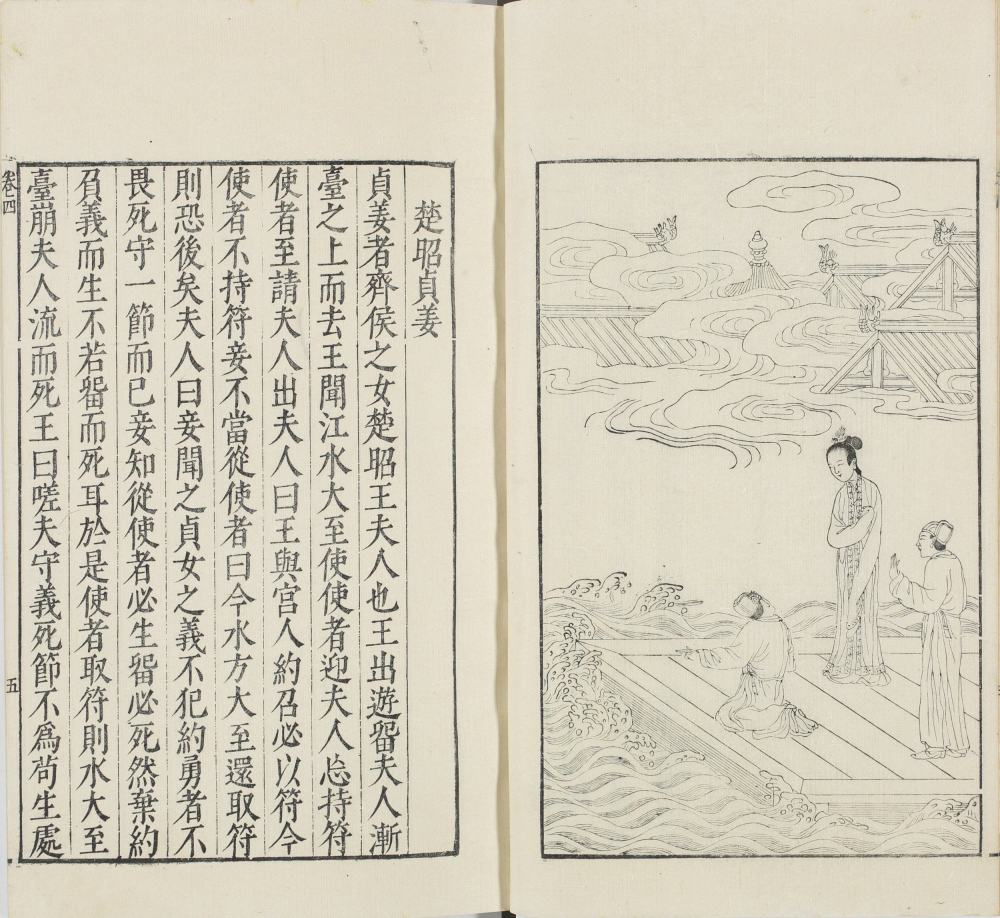 楚昭貞姜
貞姜者齊侯之女楚昭王夫人也王出遊畱夫人漸
臺之上而去王聞江水大至使使者迎夫人忘持符
使者至請夫人出夫人曰王與宮人約召必以符今
使者不持符妾不當從使者曰今水方大至還取符
則恐後矣夫人曰妾聞之貞女之義不犯約勇者不
畏死守一節而已妾知從使者必生畱必死然棄約
負義而生不若畱而死耳於是使者取符則水大至
臺崩夫人流而死王曰嗟夫守義死節不爲苟生處
卷四
五